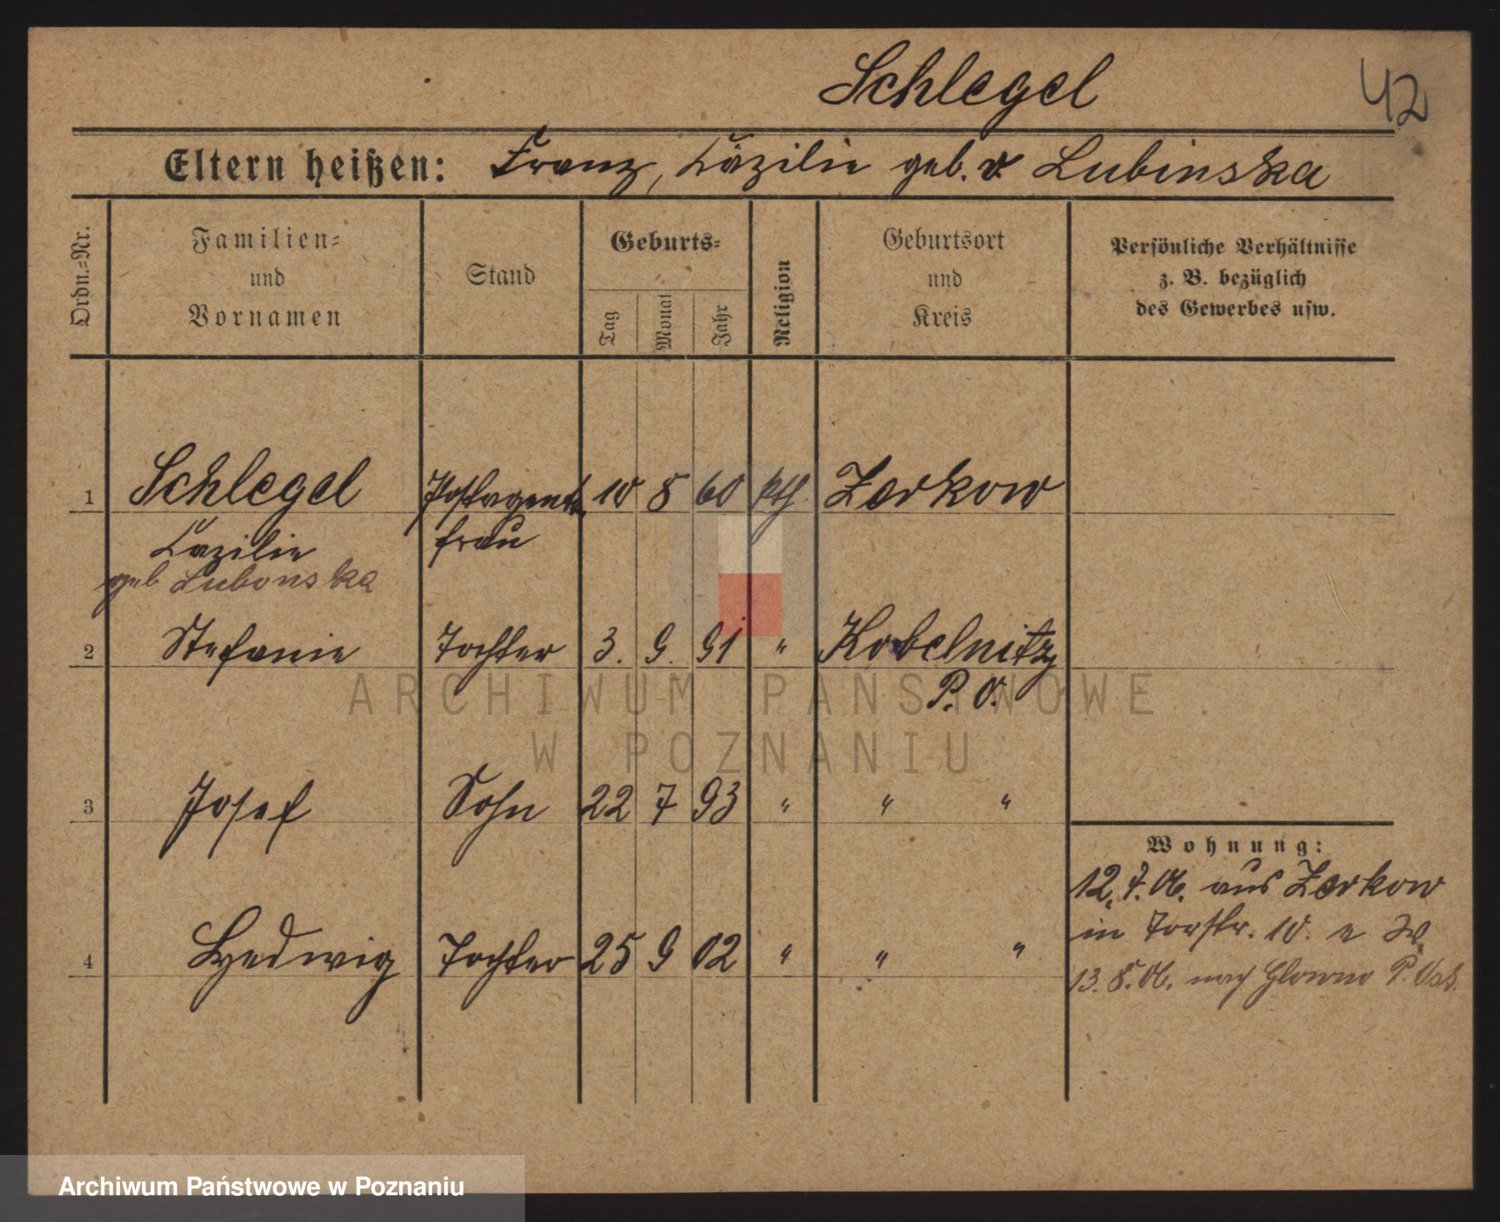 Schlegel
42
Eltern heißen: Franz, Cäzilie geb. v Lubinska
Ordn.-Nr.
Familien-
und
Vornamen
Stand
Geburts-
Tag
Monat
Jahr
Religion
Geburtsort
und
Kreis
Persönliche Verhältnisse
z. B. bezüglich
des Gewerbes usw.
1 Schlegel Postagenten 10 8 60 kth. Zerkow
Cäzilie frau
geb Lubonska
2 Stefanie Tochter 3. 9. 91 " Kobelnitz
P. O.
3 Josef Sohn 22 7 93 " " "
Wohnung:
12. 7. 06. aus Zerkow
in Torstr. 10.
4 Hedwig Tochter 25 9 02 " " "
13. 8. 06. nach Glowno P. Ost.
ARCHIWUM PAŃSTWOWE
W POZNANIU
Archiwum Państwowe w Poznaniu